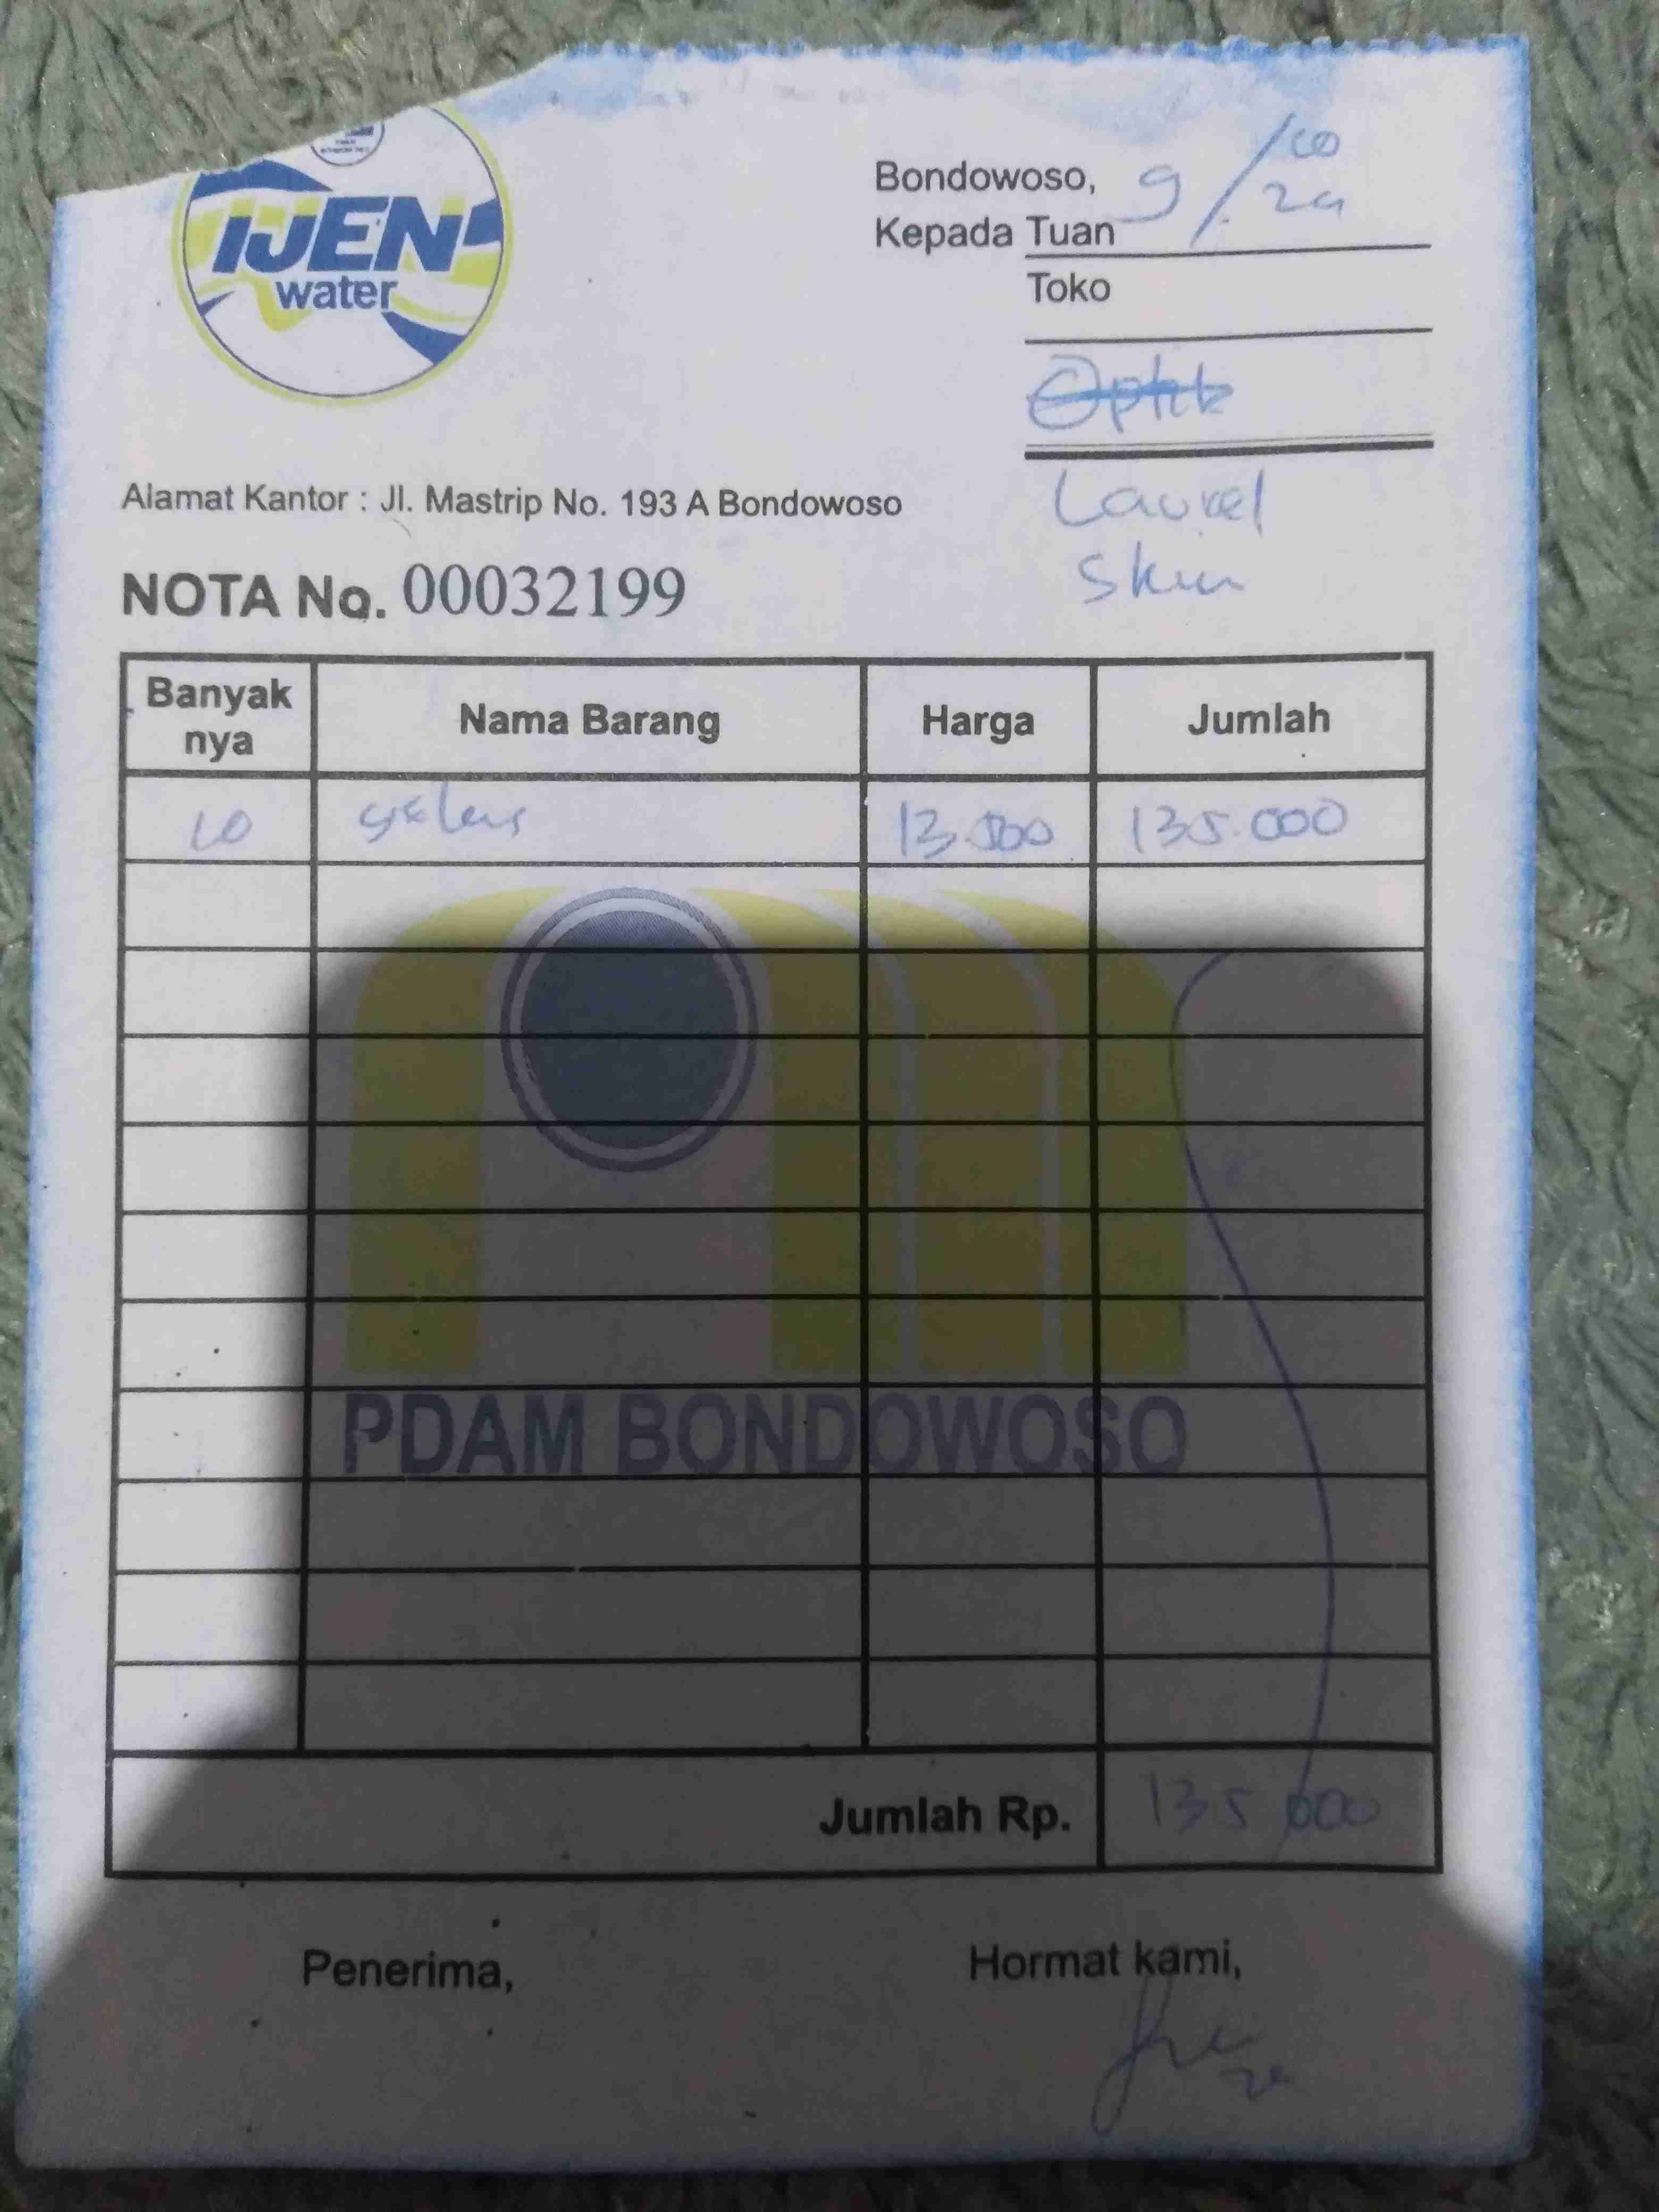 IJEN
water
Bondowoso, 9/10
24
Kepada Tuan
Toko
Optik
Laurel
Skin
Alamat Kantor : Jl. Mastrip No. 193 A Bondowoso
NOTA No. 00032199
Banyak nya Nama Barang Harga Jumlah
10 gelas 13.500 135.000
PDAM BONDOWOSO
Jumlah Rp. 135.000
Penerima, Hormat kami,